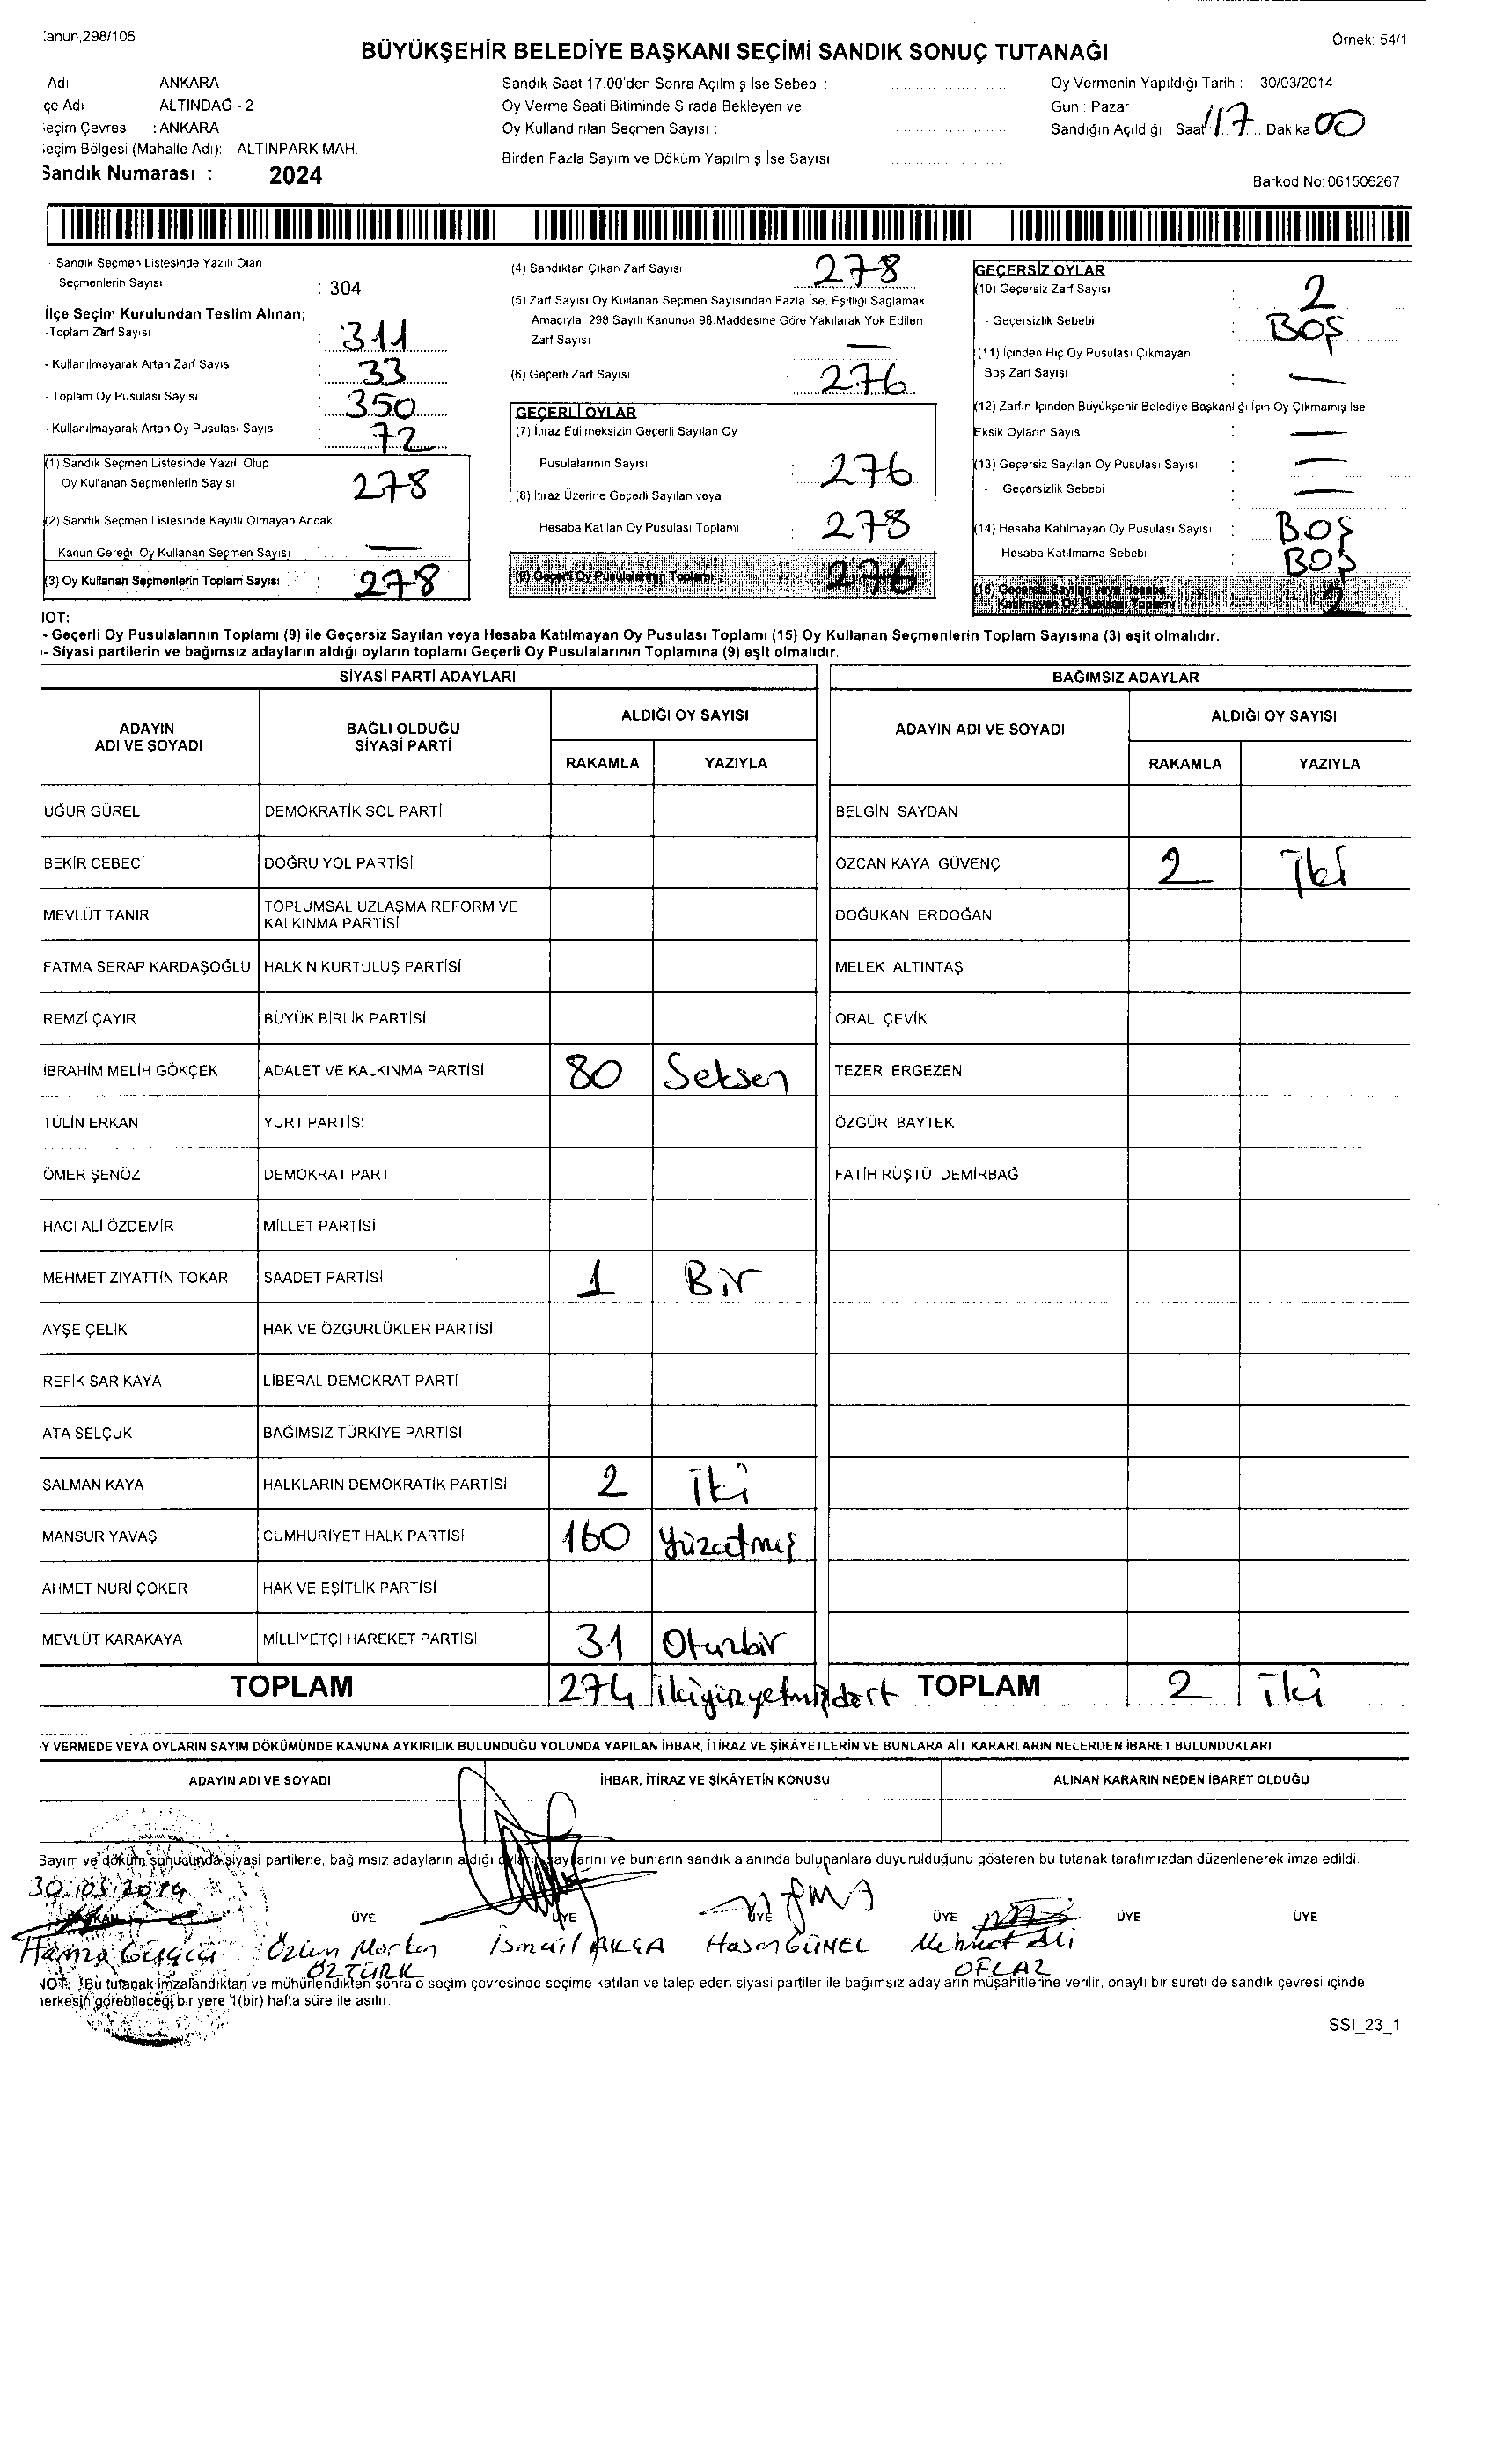 :anun,298/105
Örnek: 54/1
BÜYÜKŞEHİR BELEDİYE BAŞKANI SEÇİMİ SANDIK SONUÇ TUTANAĞI
Adı ANKARA
çe Adı ALTINDAĞ - 2
ieçim Çevresi : ANKARA
ieçim Bölgesi (Mahalle Adı): ALTINPARK MAH.
Sandık Numarası : 2024
Sandık Saat 17.00'den Sonra Açılmış İse Sebebi :
Oy Verme Saati Bitiminde Sırada Bekleyen ve
Oy Kullandırılan Seçmen Sayısı :
Birden Fazla Sayım ve Döküm Yapılmış İse Sayısı:
Oy Vermenin Yapıldığı Tarih : 30/03/2014
Gun : Pazar
Sandığın Açıldığı Saat 17 Dakika 00
Barkod No: 061506267
Sandık Seçmen Listesinde Yazılı Olan
Seçmenlerin Sayısı : 304
İlçe Seçim Kurulundan Teslim Alınan;
-Toplam Zarf Sayısı : 311
- Kullanılmayarak Artan Zarf Sayısı : 33
- Toplam Oy Pusulası Sayısı : 350
- Kullanılmayarak Artan Oy Pusulası Sayısı : 72
(1) Sandık Seçmen Listesinde Yazılı Olup
Oy Kullanan Seçmenlerin Sayısı : 278
(2) Sandık Seçmen Listesinde Kayıtlı Olmayan Ancak
Kanun Gereği Oy Kullanan Seçmen Sayısı : —
(3) Oy Kullanan Seçmenlerin Toplam Sayısı : 278
(4) Sandıktan Çıkan Zarf Sayısı : 278
(5) Zarf Sayısı Oy Kullanan Seçmen Sayısından Fazla İse, Eşitliği Sağlamak
Amacıyla 298 Sayılı Kanunun 98.Maddesine Göre Yakılarak Yok Edilen
Zarf Sayısı : —
(6) Geçerli Zarf Sayısı : 276
GEÇERLİ OYLAR
(7) İtiraz Edilmeksizin Geçerli Sayılan Oy
Pusulalarının Sayısı : 276
(8) İtiraz Üzerine Geçerli Sayılan veya
Hesaba Katılan Oy Pusulası Toplamı : 278
(9) Geçerli Oy Pusulalarının Toplamı 276
GEÇERSİZ OYLAR
(10) Geçersiz Zarf Sayısı : 2
- Geçersizlik Sebebi : BOŞ
(11) İçinden Hiç Oy Pusulası Çıkmayan
Boş Zarf Sayısı : —
(12) Zarfın İçinden Büyükşehir Belediye Başkanlığı İçin Oy Çıkmamış İse
Eksik Oyların Sayısı : —
(13) Geçersiz Sayılan Oy Pusulası Sayısı : —
- Geçersizlik Sebebi : —
(14) Hesaba Katılmayan Oy Pusulası Sayısı : BOŞ
- Hesaba Katılmama Sebebi : BOŞ
(15) Geçersiz Sayılan veya Hesaba
Katılmayan Oy Pusulası Toplamı 2
IOT:
- Geçerli Oy Pusulalarının Toplamı (9) ile Geçersiz Sayılan veya Hesaba Katılmayan Oy Pusulası Toplamı (15) Oy Kullanan Seçmenlerin Toplam Sayısına (3) eşit olmalıdır.
- Siyasi partilerin ve bağımsız adayların aldığı oyların toplamı Geçerli Oy Pusulalarının Toplamına (9) eşit olmalıdır.
SİYASİ PARTİ ADAYLARI
BAĞIMSIZ ADAYLAR
ADAYIN ADI VE SOYADI
BAĞLI OLDUĞU SİYASİ PARTİ
ALDIĞI OY SAYISI
RAKAMLA YAZIYLA
ADAYIN ADI VE SOYADI
ALDIĞI OY SAYISI
RAKAMLA YAZIYLA
UĞUR GÜREL DEMOKRATİK SOL PARTİ BELGİN SAYDAN
BEKİR CEBECİ DOĞRU YOL PARTİSİ ÖZCAN KAYA GÜVENÇ 2 İki
MEVLÜT TANIR TOPLUMSAL UZLAŞMA REFORM VE KALKINMA PARTİSİ DOĞUKAN ERDOĞAN
FATMA SERAP KARDAŞOĞLU HALKIN KURTULUŞ PARTİSİ MELEK ALTINTAŞ
REMZİ ÇAYIR BÜYÜK BİRLİK PARTİSİ ORAL ÇEVİK
İBRAHİM MELİH GÖKÇEK ADALET VE KALKINMA PARTİSİ 80 Seksen TEZER ERGEZEN
TÜLİN ERKAN YURT PARTİSİ ÖZGÜR BAYTEK
ÖMER ŞENÖZ DEMOKRAT PARTİ FATİH RÜŞTÜ DEMİRBAĞ
HACI ALİ ÖZDEMİR MİLLET PARTİSİ
MEHMET ZİYATTİN TOKAR SAADET PARTİSİ 1 Bir
AYŞE ÇELİK HAK VE ÖZGÜRLÜKLER PARTİSİ
REFİK SARIKAYA LİBERAL DEMOKRAT PARTİ
ATA SELÇUK BAĞIMSIZ TÜRKİYE PARTİSİ
SALMAN KAYA HALKLARIN DEMOKRATİK PARTİSİ 2 İki
MANSUR YAVAŞ CUMHURİYET HALK PARTİSİ 160 Yüzatmış
AHMET NURİ ÇOKER HAK VE EŞİTLİK PARTİSİ
MEVLÜT KARAKAYA MİLLİYETÇİ HAREKET PARTİSİ 31 Oturbir
TOPLAM 274 ikiyüzyetmişdört TOPLAM 2 iki
IY VERMEDE VEYA OYLARIN SAYIM DÖKÜMÜNDE KANUNA AYKIRILIK BULUNDUĞU YOLUNDA YAPILAN İHBAR, İTİRAZ VE ŞİKÂYETLERİN VE BUNLARA AİT KARARLARIN NELERDEN İBARET BULUNDUKLARI
ADAYIN ADI VE SOYADI İHBAR, İTİRAZ VE ŞİKÂYETİN KONUSU ALINAN KARARIN NEDEN İBARET OLDUĞU
Sayım ve döküm sonucunda siyasi partilerle, bağımsız adayların aldığı oyların sayılarını ve bunların sandık alanında bulunanlara duyurulduğunu gösteren bu tutanak tarafımızdan düzenlenerek imza edildi.
30/03/2014
ÜYE ÜYE ÜYE ÜYE ÜYE ÜYE
Hamza İsmail AKÇA Hasan GÜNEL Mehmet Ali
ÖZTÜRK OFLAZ
NOT: Bu tutanak imzalandıktan ve mühürlendikten sonra o seçim çevresinde seçime katılan ve talep eden siyasi partiler ile bağımsız adayların müşahitlerine verilir, onaylı bir sureti de sandık çevresi içinde
ierkesin görebileceği bir yere 1(bir) hafta süre ile asılır.
SSI_23_1